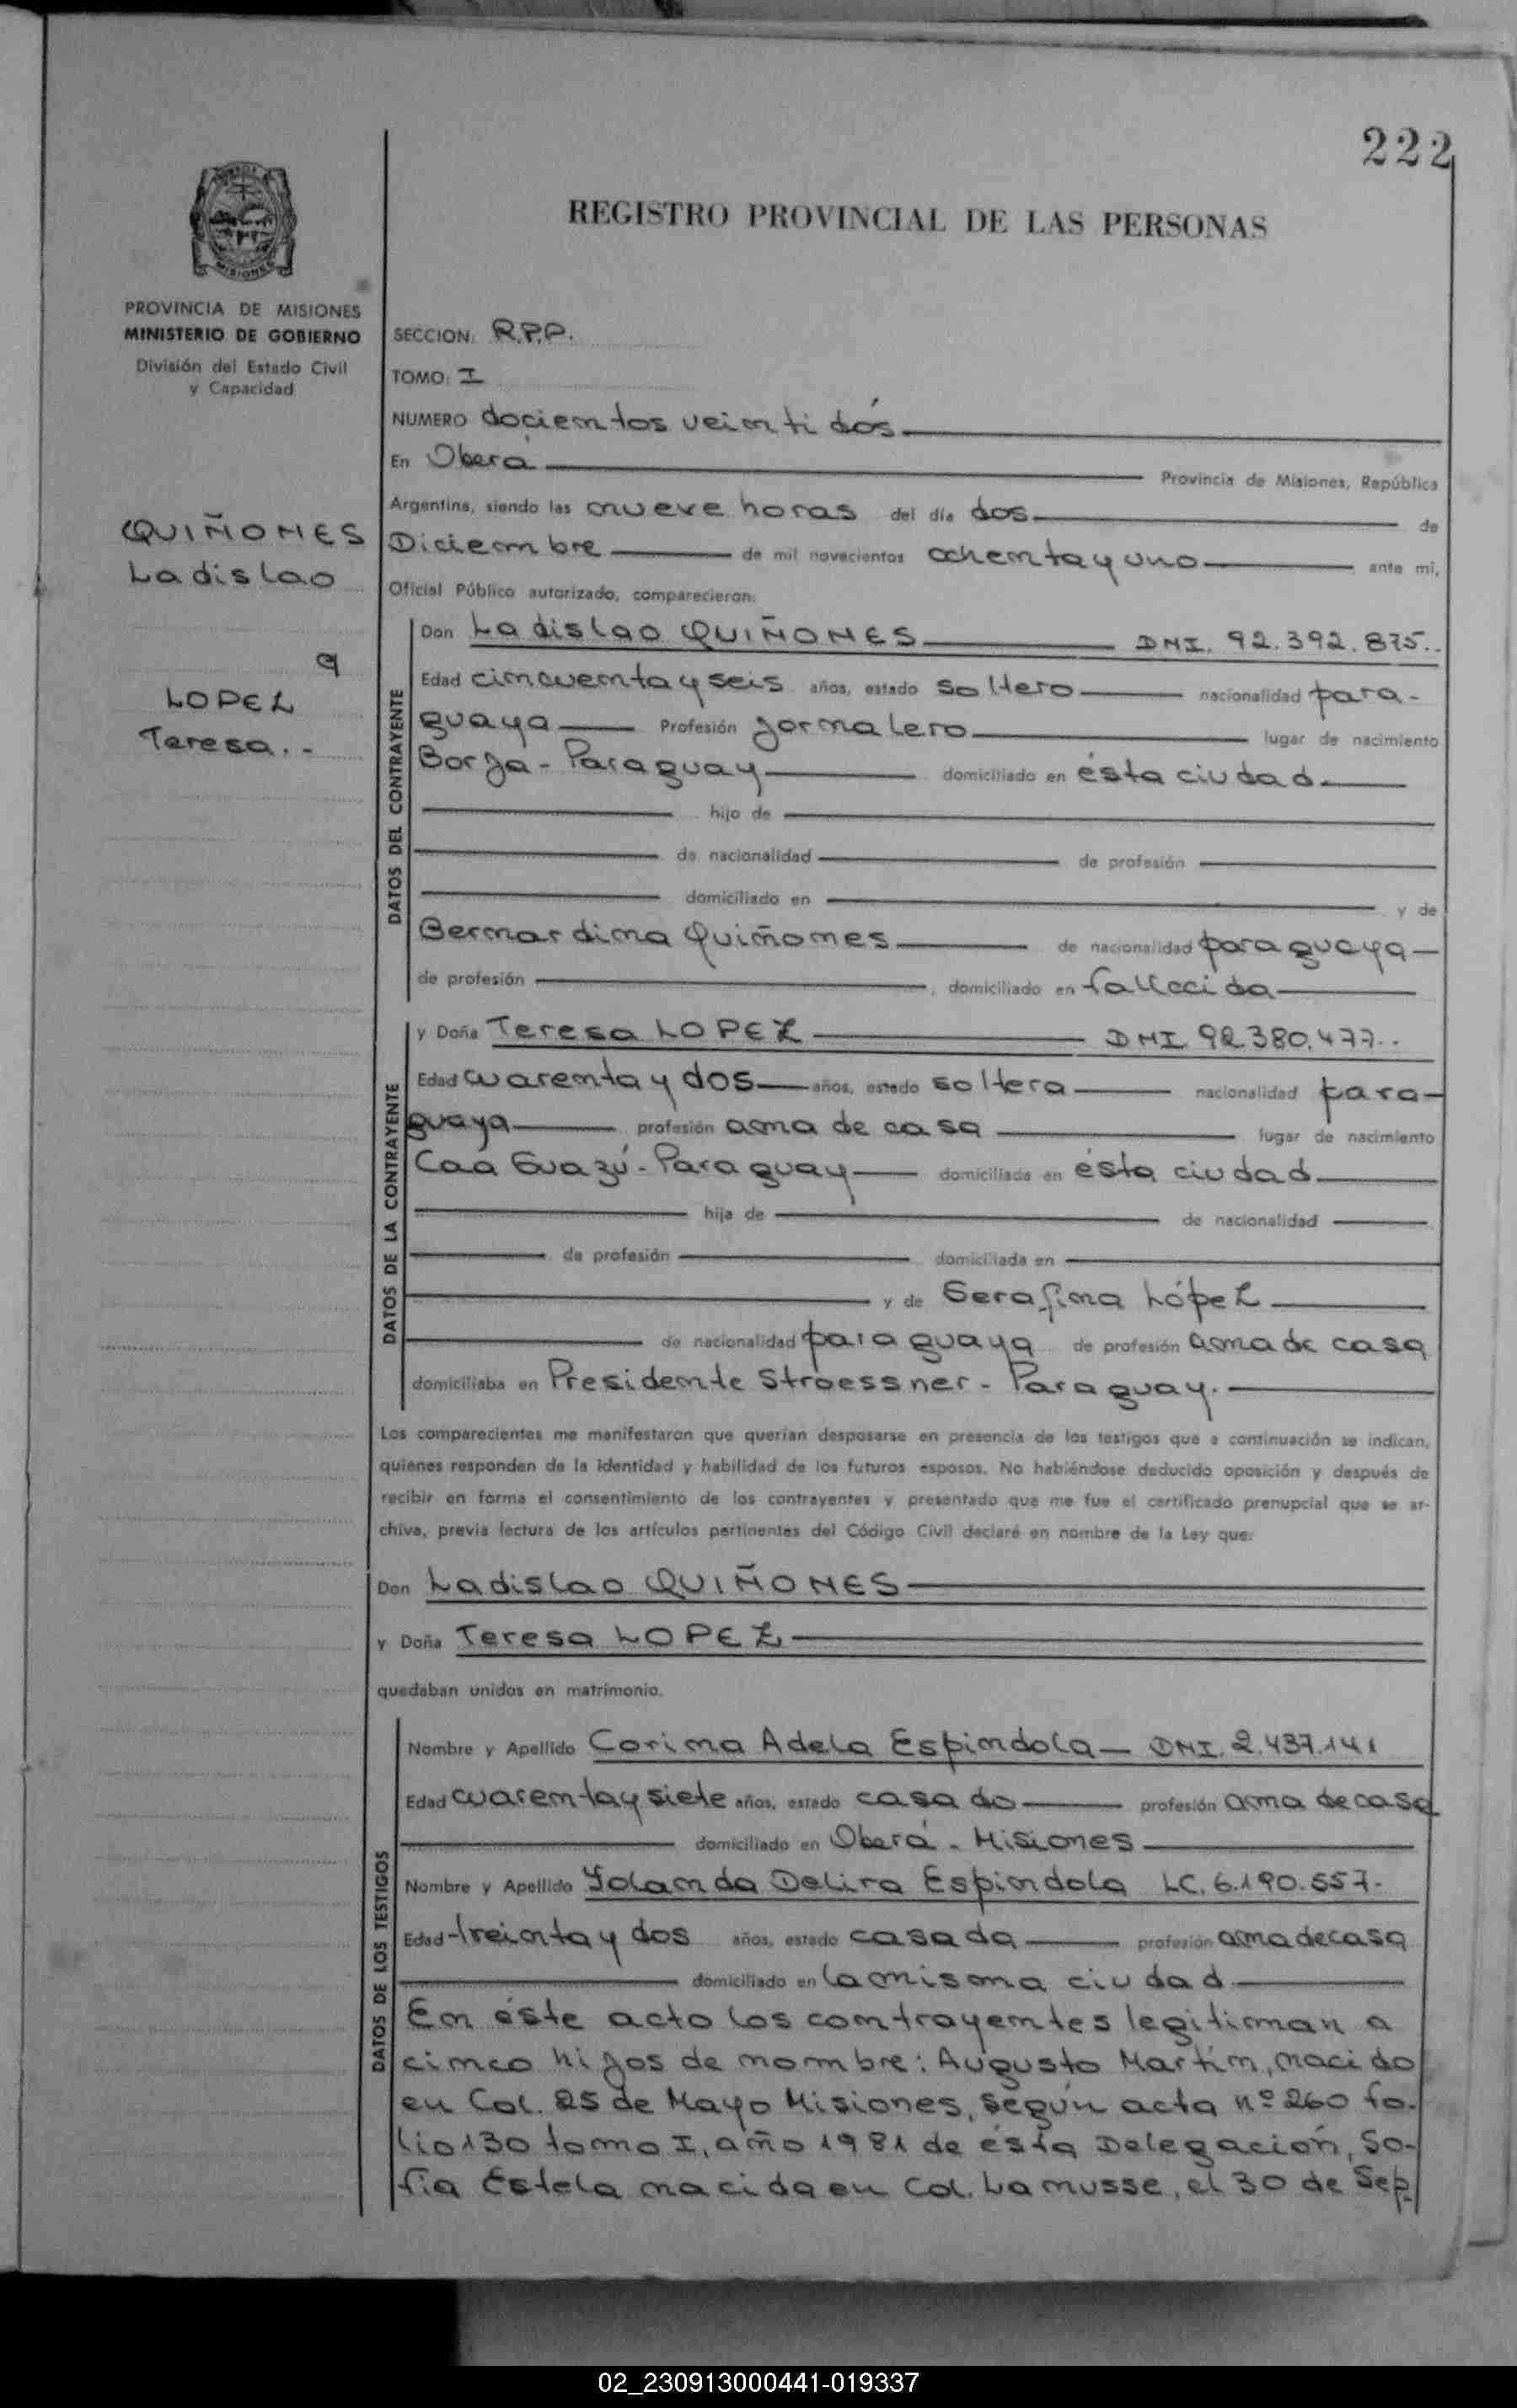 222
REGISTRO PROVINCIAL DE LAS PERSONAS
MISIONES
PROVINCIA DE MISIONES
MINISTERIO DE GOBIERNO
División del Estado Civil
y Capacidad
QUIÑONES
Ladislao
y
LOPEZ
Teresa..-
SECCION: R.P.P.
TOMO: I
NUMERO docientos veinti dós
En Oberá Provincia de Misiones, República
Argentina, siendo las nueve horas del día dos de
Diciembre de mil novecientos ochenta y uno ante mí,
Oficial Público autorizado, comparecieron:
DATOS DEL CONTRAYENTE
Don Ladislao QUIÑONES DNI. 92.392.875..
Edad cincuenta y seis años, estado soltero nacionalidad para-
guaya Profesión jornalero lugar de nacimiento
Borja - Paraguay domiciliado en ésta ciudad
hijo de
de nacionalidad de profesión
domiciliado en y de
Bernardina Quiñones de nacionalidad paraguaya
de profesión , domiciliado en fallecida
DATOS DE LA CONTRAYENTE
y Doña Teresa LOPEZ DNI 92.380.477..
Edad cuarenta y dos años, estado soltera nacionalidad para-
guaya profesión ama de casa lugar de nacimiento
Caá Guazú - Paraguay domiciliada en ésta ciudad
hija de de nacionalidad
de profesión domiciliada en
y de Serafina López
de nacionalidad paraguaya de profesión ama de casa
domiciliaba en Presidente Stroessner - Paraguay.
Los comparecientes me manifestaron que querían desposarse en presencia de los testigos que a continuación se indican,
quienes responden de la identidad y habilidad de los futuros esposos. No habiéndose deducido oposición y después de
recibir en forma el consentimiento de los contrayentes y presentado que me fue el certificado prenupcial que se ar-
chiva, previa lectura de los artículos pertinentes del Código Civil declaré en nombre de la Ley que:
Don Ladislao QUIÑONES
y Doña Teresa LOPEZ
quedaban unidos en matrimonio.
DATOS DE LOS TESTIGOS
Nombre y Apellido Corina Adela Espindola - DNI. 2.437.141
Edad cuarenta y siete años, estado casado profesión ama de casa
domiciliado en Oberá - Misiones
Nombre y Apellido Yolanda Delira Espindola LC. 6.190.557.
Edad treinta y dos años, estado casada profesión ama de casa
domiciliado en la misma ciudad.
En éste acto los contrayentes legitiman a
cinco hijos de nombre: Augusto Martín, nacido
en Col. 25 de Mayo Misiones, según acta nº 260 fo-
lio 130 tomo I, año 1981 de ésta Delegación, So-
fia Estela nacida en Col. Lamusse, el 30 de Sep.
02_230913000441-019337